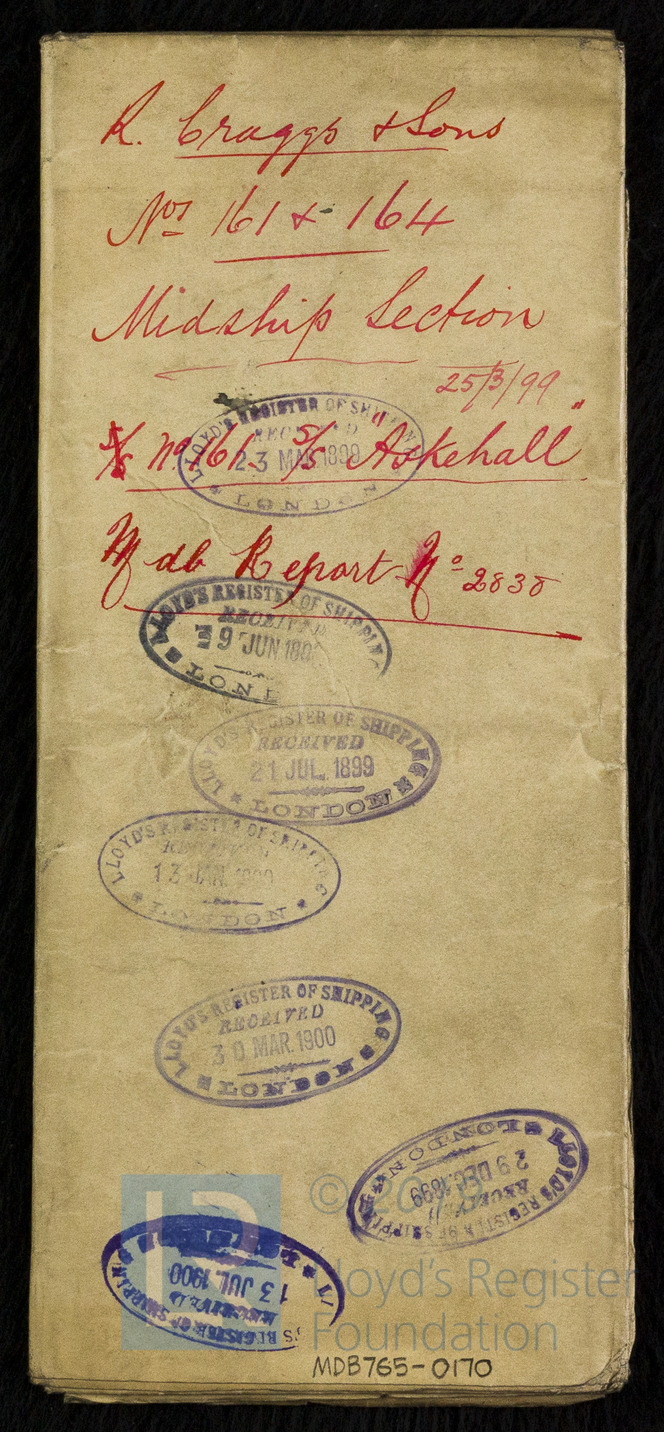 R. Craggs & Sons
Nos 161 & 164
Midship Section
25/3/99
LLOYD'S REGISTER OF SHIPPING
RECEIVED
23 MAR 1899
LONDON
Nº 161 S/S "Askehall"
Mdb Report Nº 2838
LLOYD'S REGISTER OF SHIPPING
RECEIVED
9 JUN
LOND
LLOYD'S REGISTER OF SHIPPING
RECEIVED
21 JUL. 1899
LONDON
LLOYD'S REGISTER OF SHIPPING
RECEIVED
13 JAN.
LONDON
LLOYD'S REGISTER OF SHIPPING
RECEIVED
30 MAR. 1900
LONDON
LLOYD'S REGISTER OF SHIPPING
RECEIVED
29 DEC. 1899
LONDON
REGISTER OF SHIPPING
RECEIVED
13 JUL. 1900
©
Lloyd's Register
Foundation
MDB765-0170